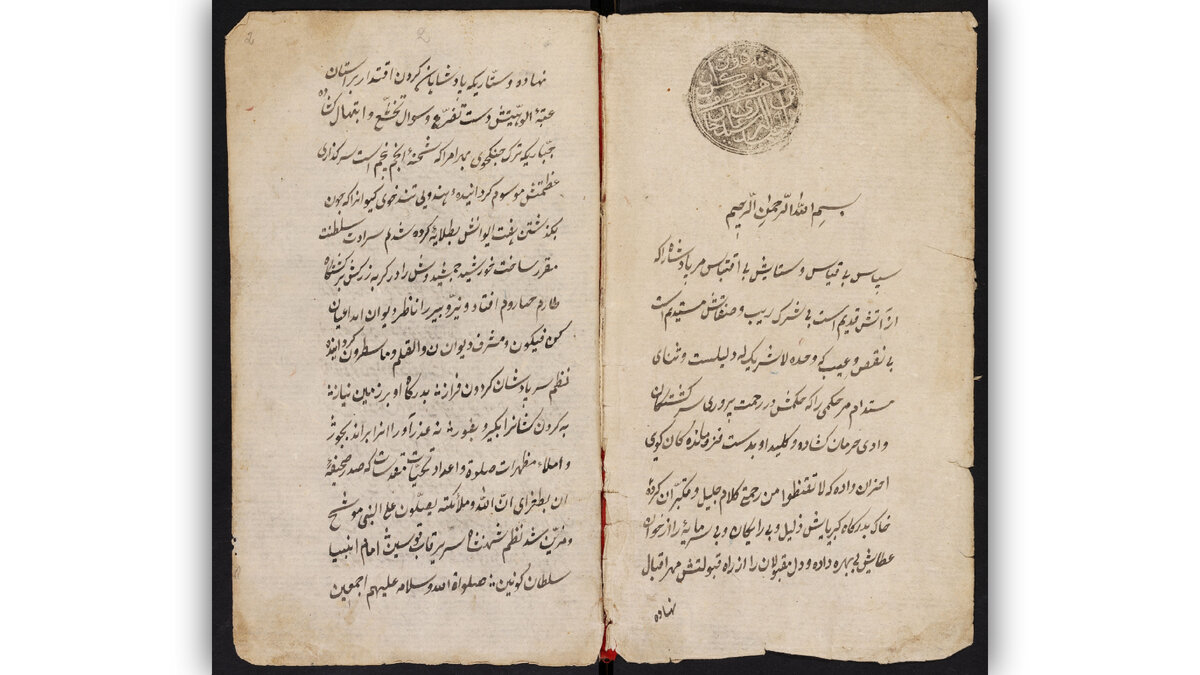 بسم الله الرحمن الرحیم
سپاس بی قیاس و ستایش بی اقتباس مر پادشاه را که
از آتش قدیم است بی شرک ریب و صفاتش مستدیم است
بی نقص و عیب که وحده لا شریک له دلیلست و ثنای
مستدام مر حکمی را که حکمش در رحمت پروری سر کشتکان
وادی حرمان کشاده و کلید او بدست فرو مانده کان کوی
احزان داده که لا تقنطوا من رحمة کلام جلیل و متکبران کرده
خاک بدرکاه کبریایش ذلیل و بی رایکان و بی سرمایهٔ را از خوان
عطایش بی بهره داده و دل مقبولان را از راه قبولتش مهر اقبال
نهاده
2
نهاده و ستاریکه پادشاهان کردون اقتدار بر آستان
عتبهٔ الوهیتش دست تضرع و سوال تخشع و ابتهال کشاده
جباریکه ترک جنکجوی بهرام را که شحنهٔ انجم پنجم است سرکذاری
عظمتش موسوم کردانیده هندوی تند خوی کیوانرا که چون
بکذشتن هفت ایوانش بطلایهٔ کرده شدم سرادت سلطنت
مقرر ساخت خورشید جمشید وش را در کمر زرکش بر کشکاه
طارم چهارم افتاد و تیر دبیر را ناظر دیوان ابداعیان
کن فیکون و مشرف دیوان ن والقلم و ما یسطرون کردانیده
نظم سر پادشاهان کردون فراز بدرکاه او بر زمین نیاز
نه کردن کشانرا بکیرد بفور نه عذر آورانرا براند بجور
و املاء مطهرات صلوة و اعداد تحیات مقدسات که صدر صحیفهٔ
آن بطغرای ان الله و ملائکته یصلون علی النبی موشح
و مزین شد نظم شهنشاه سریر قاب قوسین امام انبیا
سلطان کونین صلواة الله و سلامه علیهم اجمعین